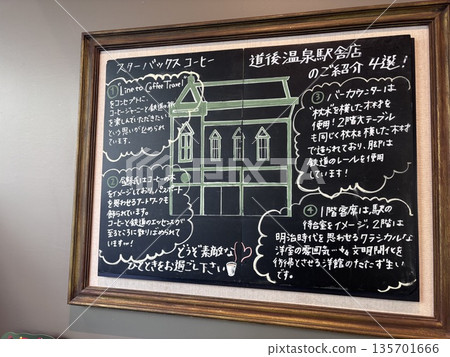 スターバックス コーヒー
道後温泉駅舎店
のご紹介 4選!
① "Line to Coffee Travel"
をコンセプトに、
コーヒージャーニーと鉄道の旅
を楽しんでいただきたい
という思いが込められ
ています。
②
イメージしており、パスポート
を思わせるアートワークを
飾られています。
コーヒーと鉄道のエッセンスが
至るところに散りばめられて
います
③ バーカウンターは
"枕木"を模した木材を
使用! 2階大テーブル
も同じく枕木を模した木材
で造られており、脚は
鉄道のレールを使用
しています!
④ 1階客席は、駅の
待合室をイメージ。2階は
明治時代を思わせるクラシカルな
洋室の雰囲気… 文明開化を
彷彿とさせる洋館のたたずまい
です。
どうぞ"素敵な
ひとときをお過ごし下さい
135701666